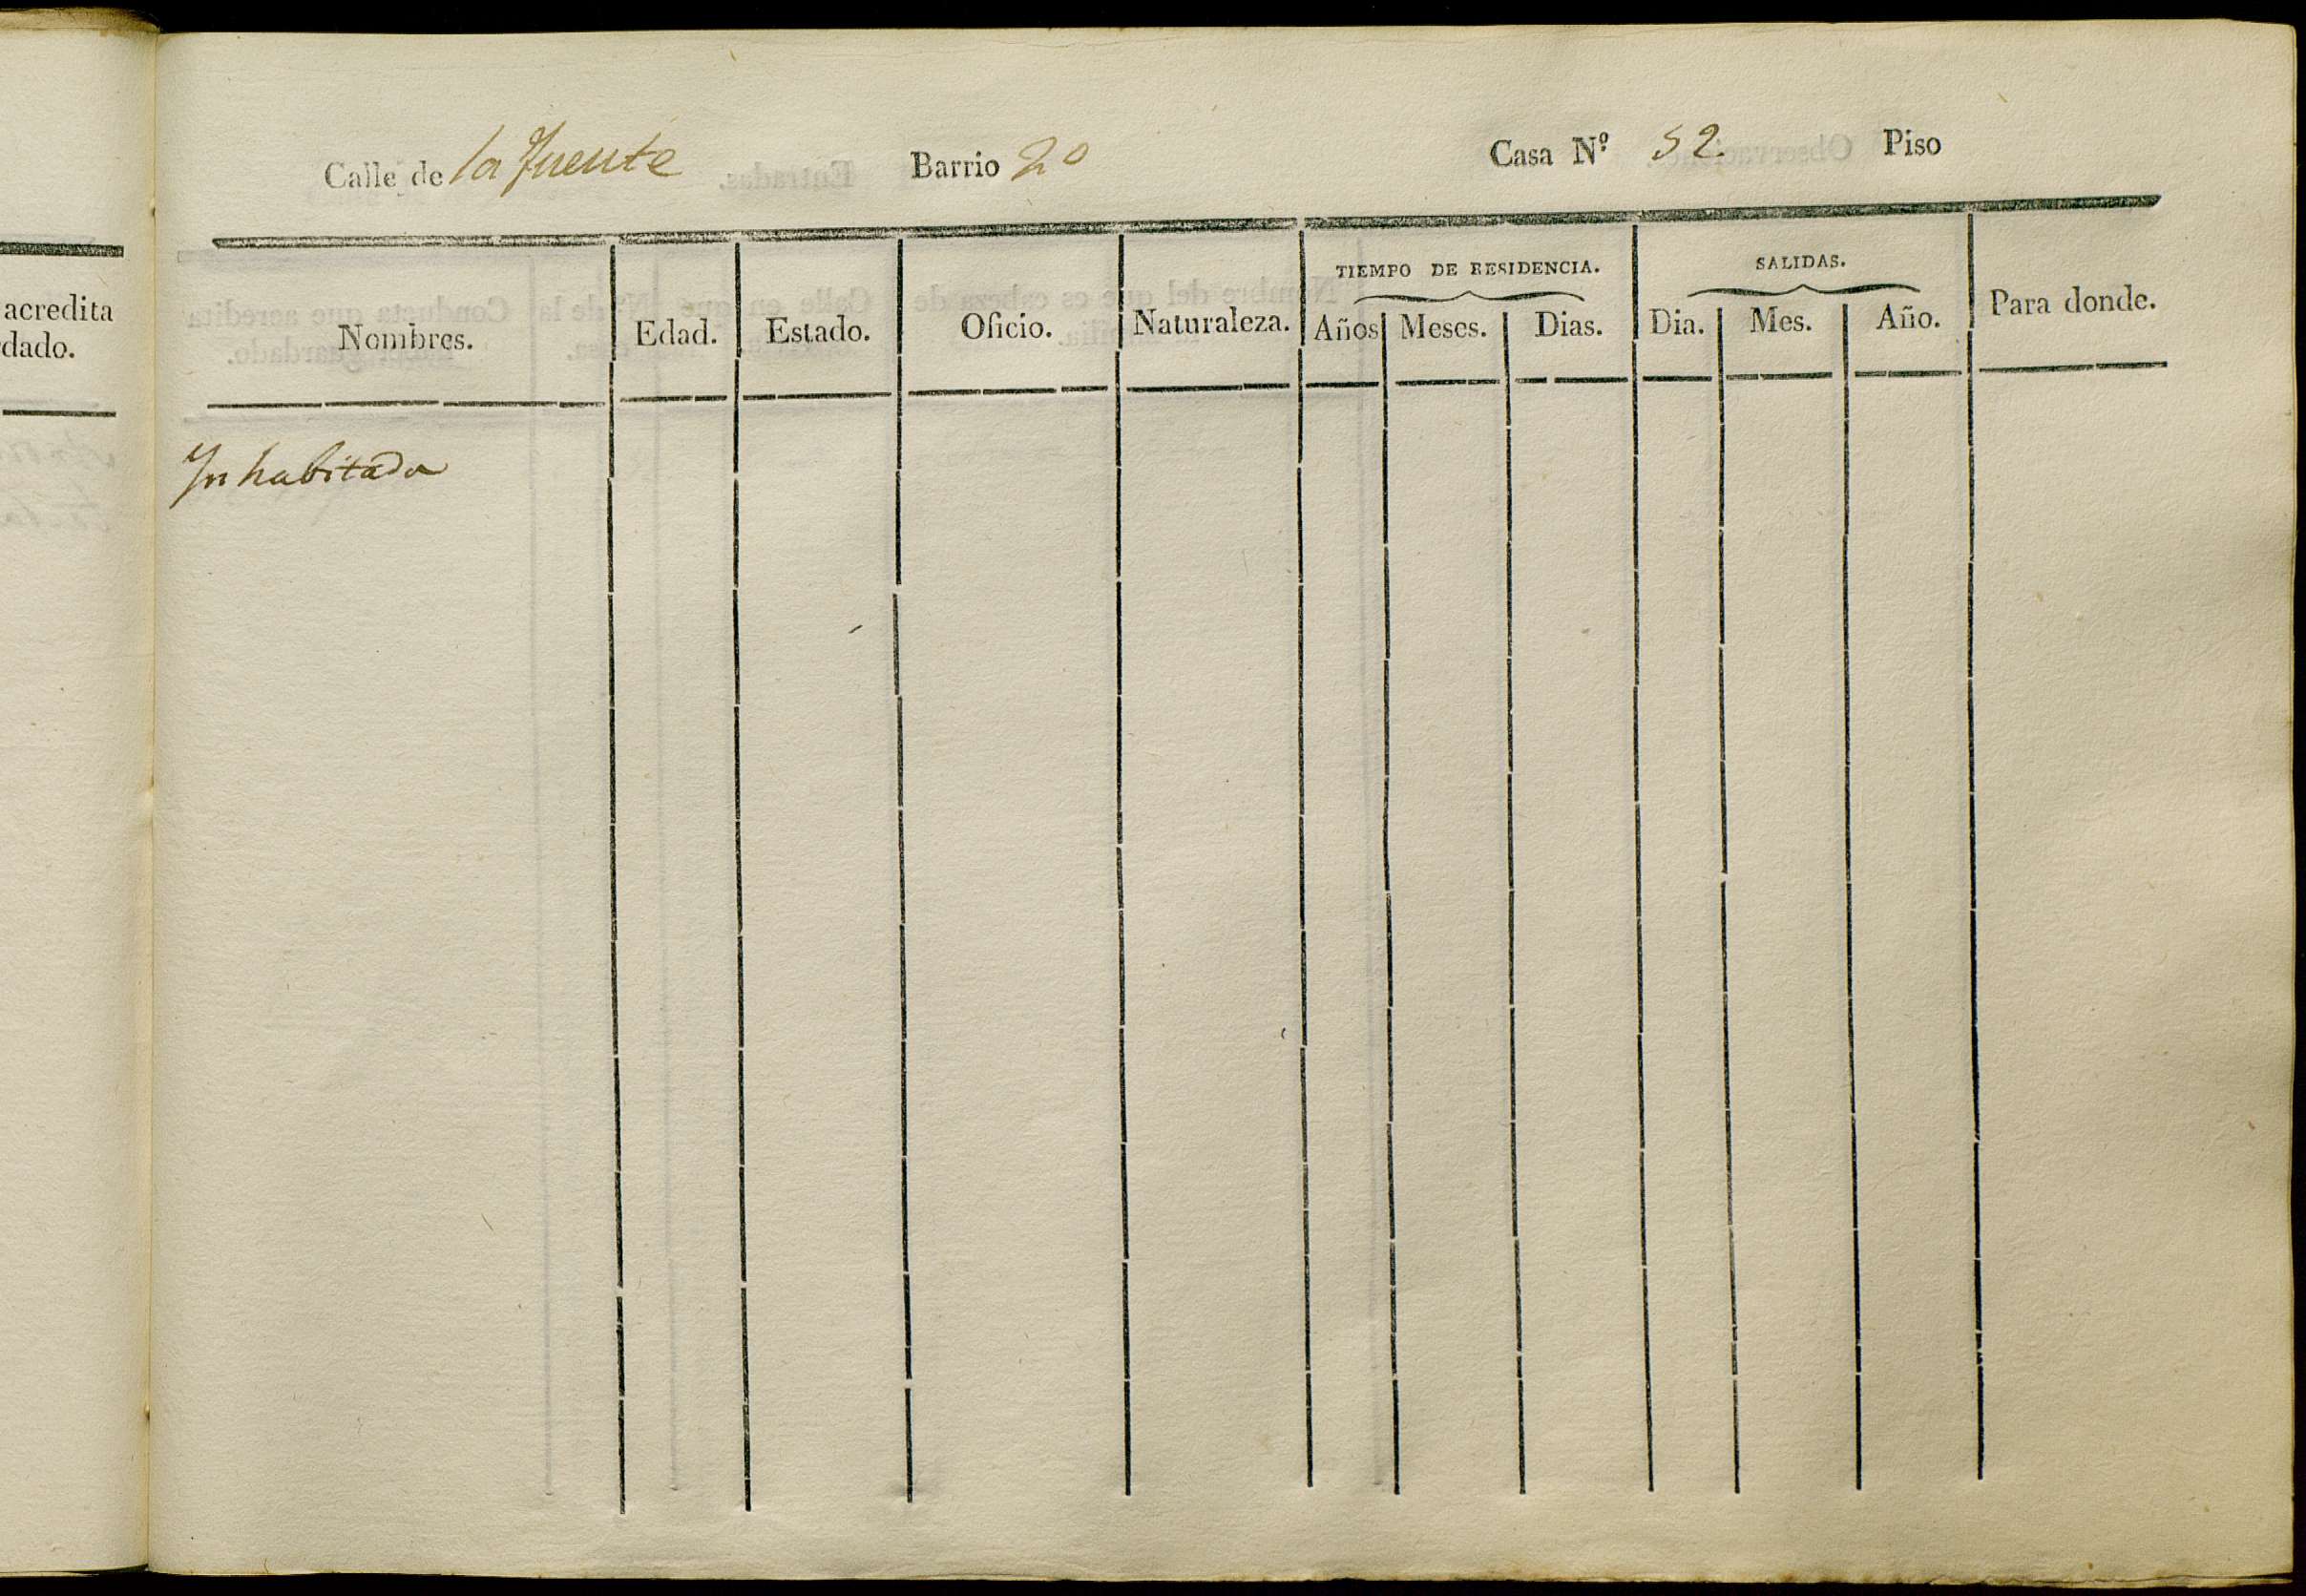 acredita
dado.
Calle de la fuente Barrio 2º Casa Nº 52. Piso
TIEMPO DE RESIDENCIA. SALIDAS.
Nombres. Edad. Estado. Oficio. Naturaleza. Años Meses. Dias. Dia. Mes. Año. Para donde.
Inhabitada